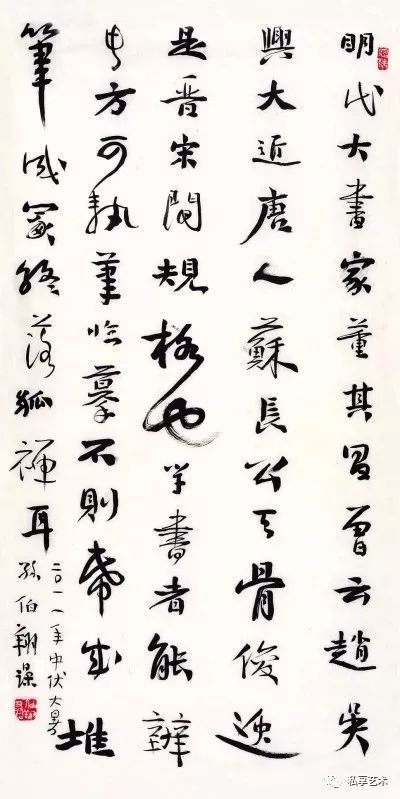 明代大書家董其昌曾云趙吳
興大近唐人蘇長公天骨俊逸
是晉宋間規格也学書者能辨
此方可執筆臨摹不則帋成堆
筆成冢終落狐禪耳
二〇一一年中伏大暑
孫伯翔
私享艺术